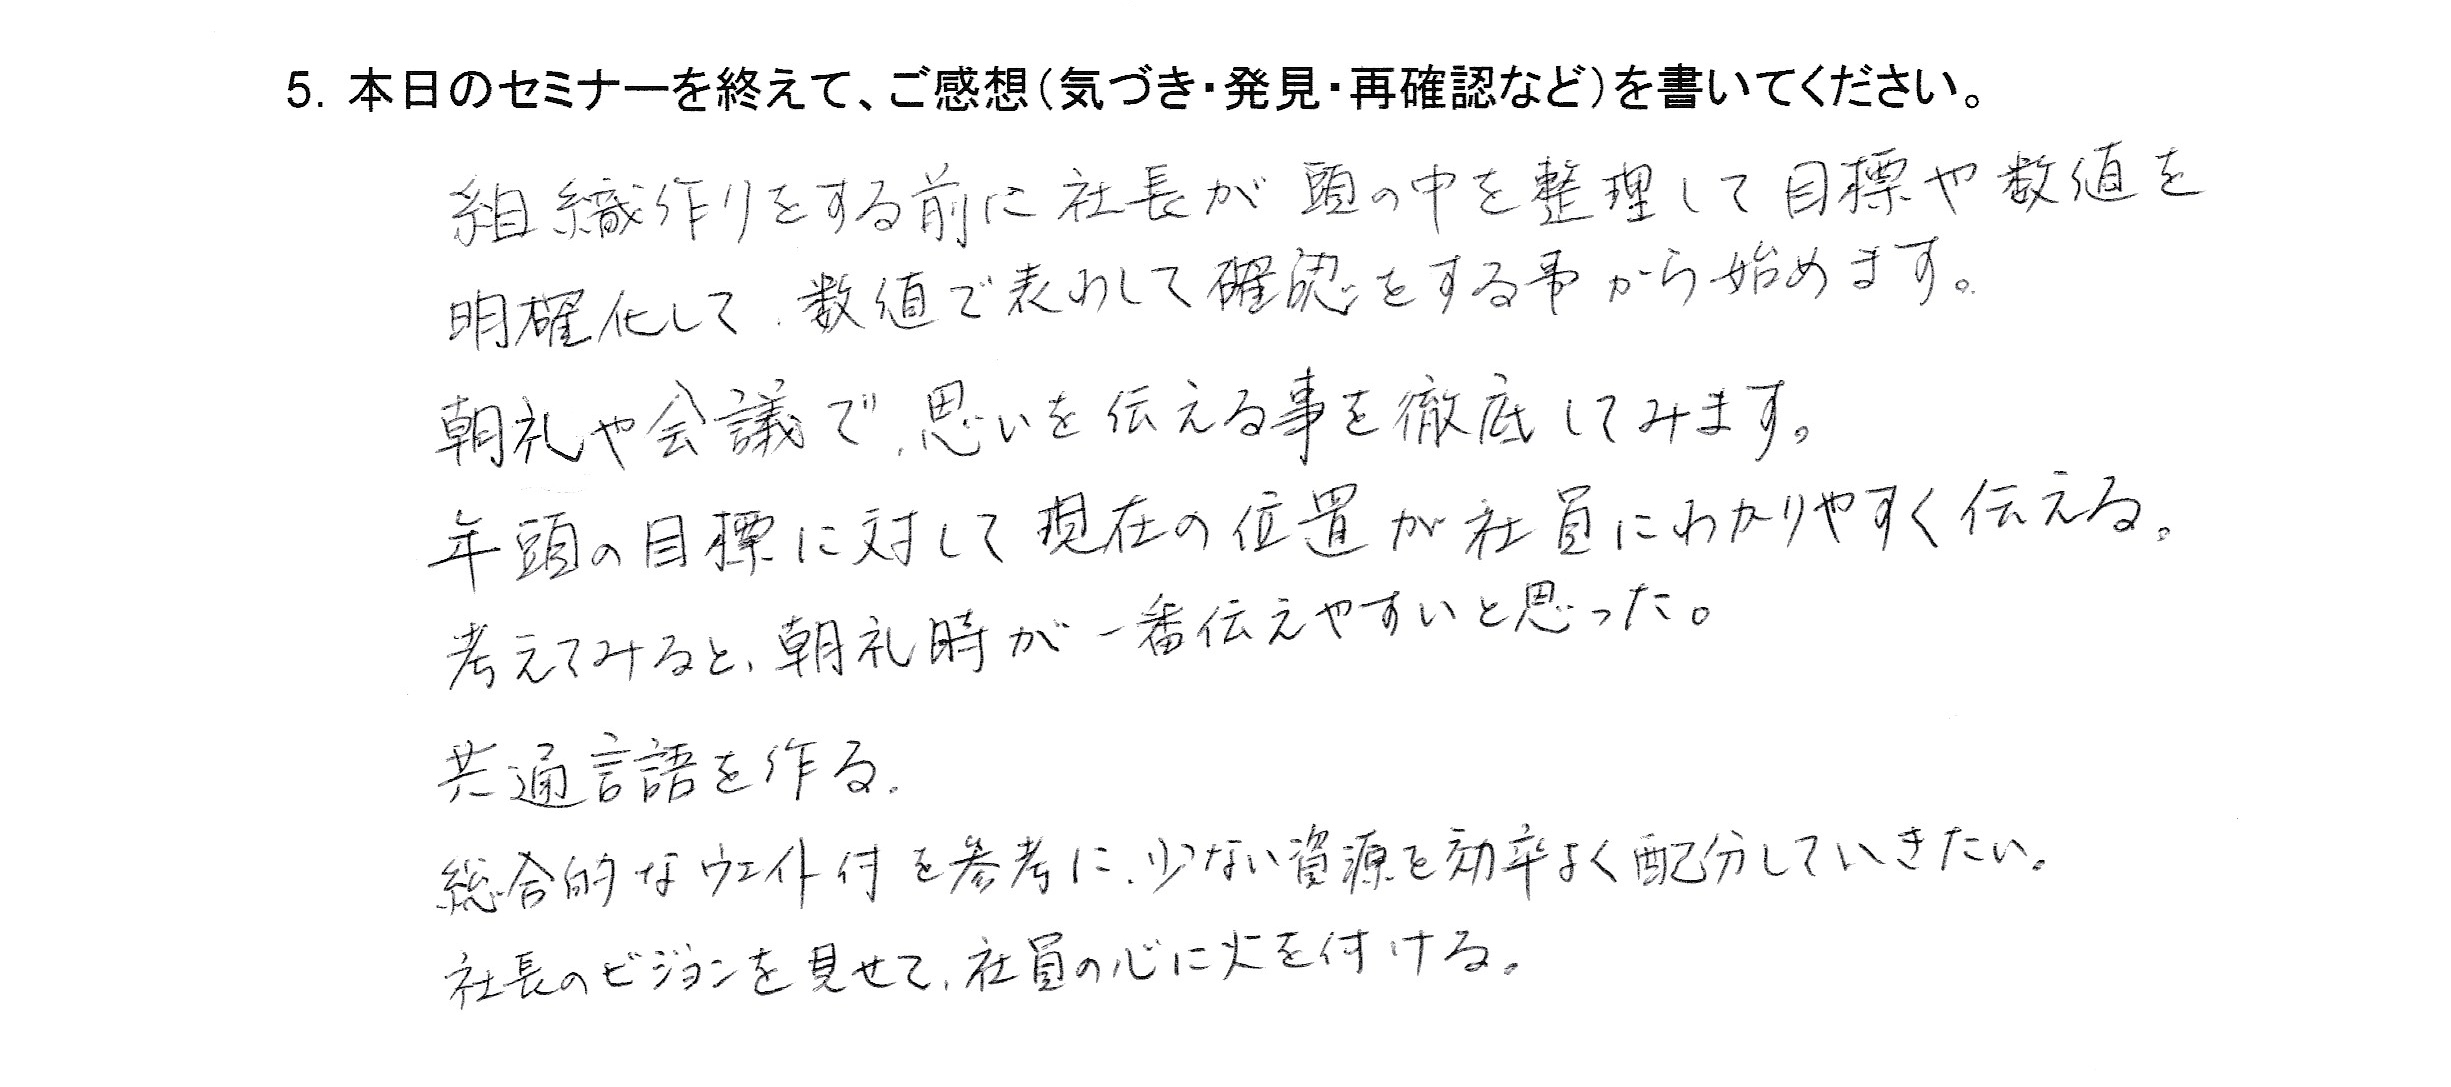 5. 本日のセミナーを終えて、ご感想（気づき・発見・再確認など）を書いてください。
組織作りをする前に社長が頭の中を整理して目標や数値を
明確化して、数値で表わして確認をする事から始めます。
朝礼や会議で、思いを伝える事を徹底してみます。
年頭の目標に対して現在の位置が社員にわかりやすく伝える。
考えてみると、朝礼時が一番伝えやすいと思った。
共通言語を作る。
総合的なウェイト付を参考に、少ない資源を効率よく配分していきたい。
社長のビジョンを見せて、社員の心に火を付ける。